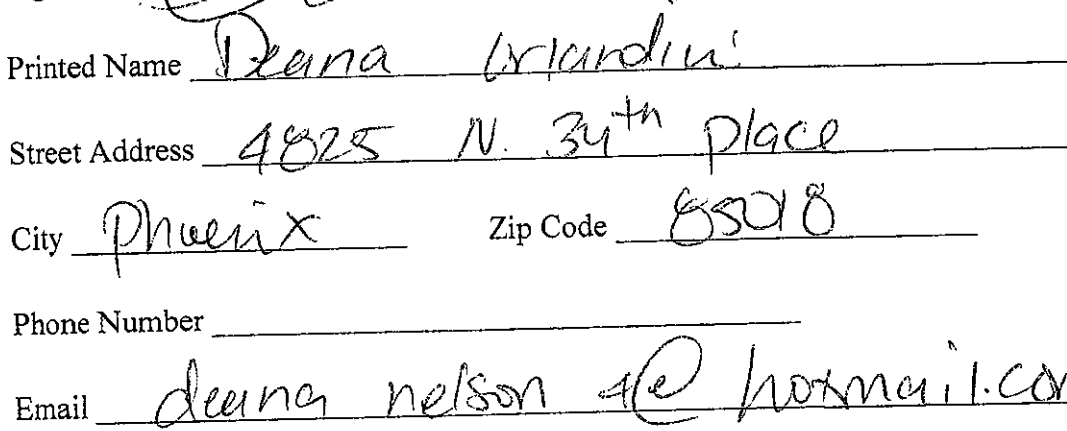 Printed Name Deana Orlandini
Street Address 4825 N. 34th place
City Phoenix Zip Code 85018
Phone Number
Email deana nelson 4@ hotmail.com